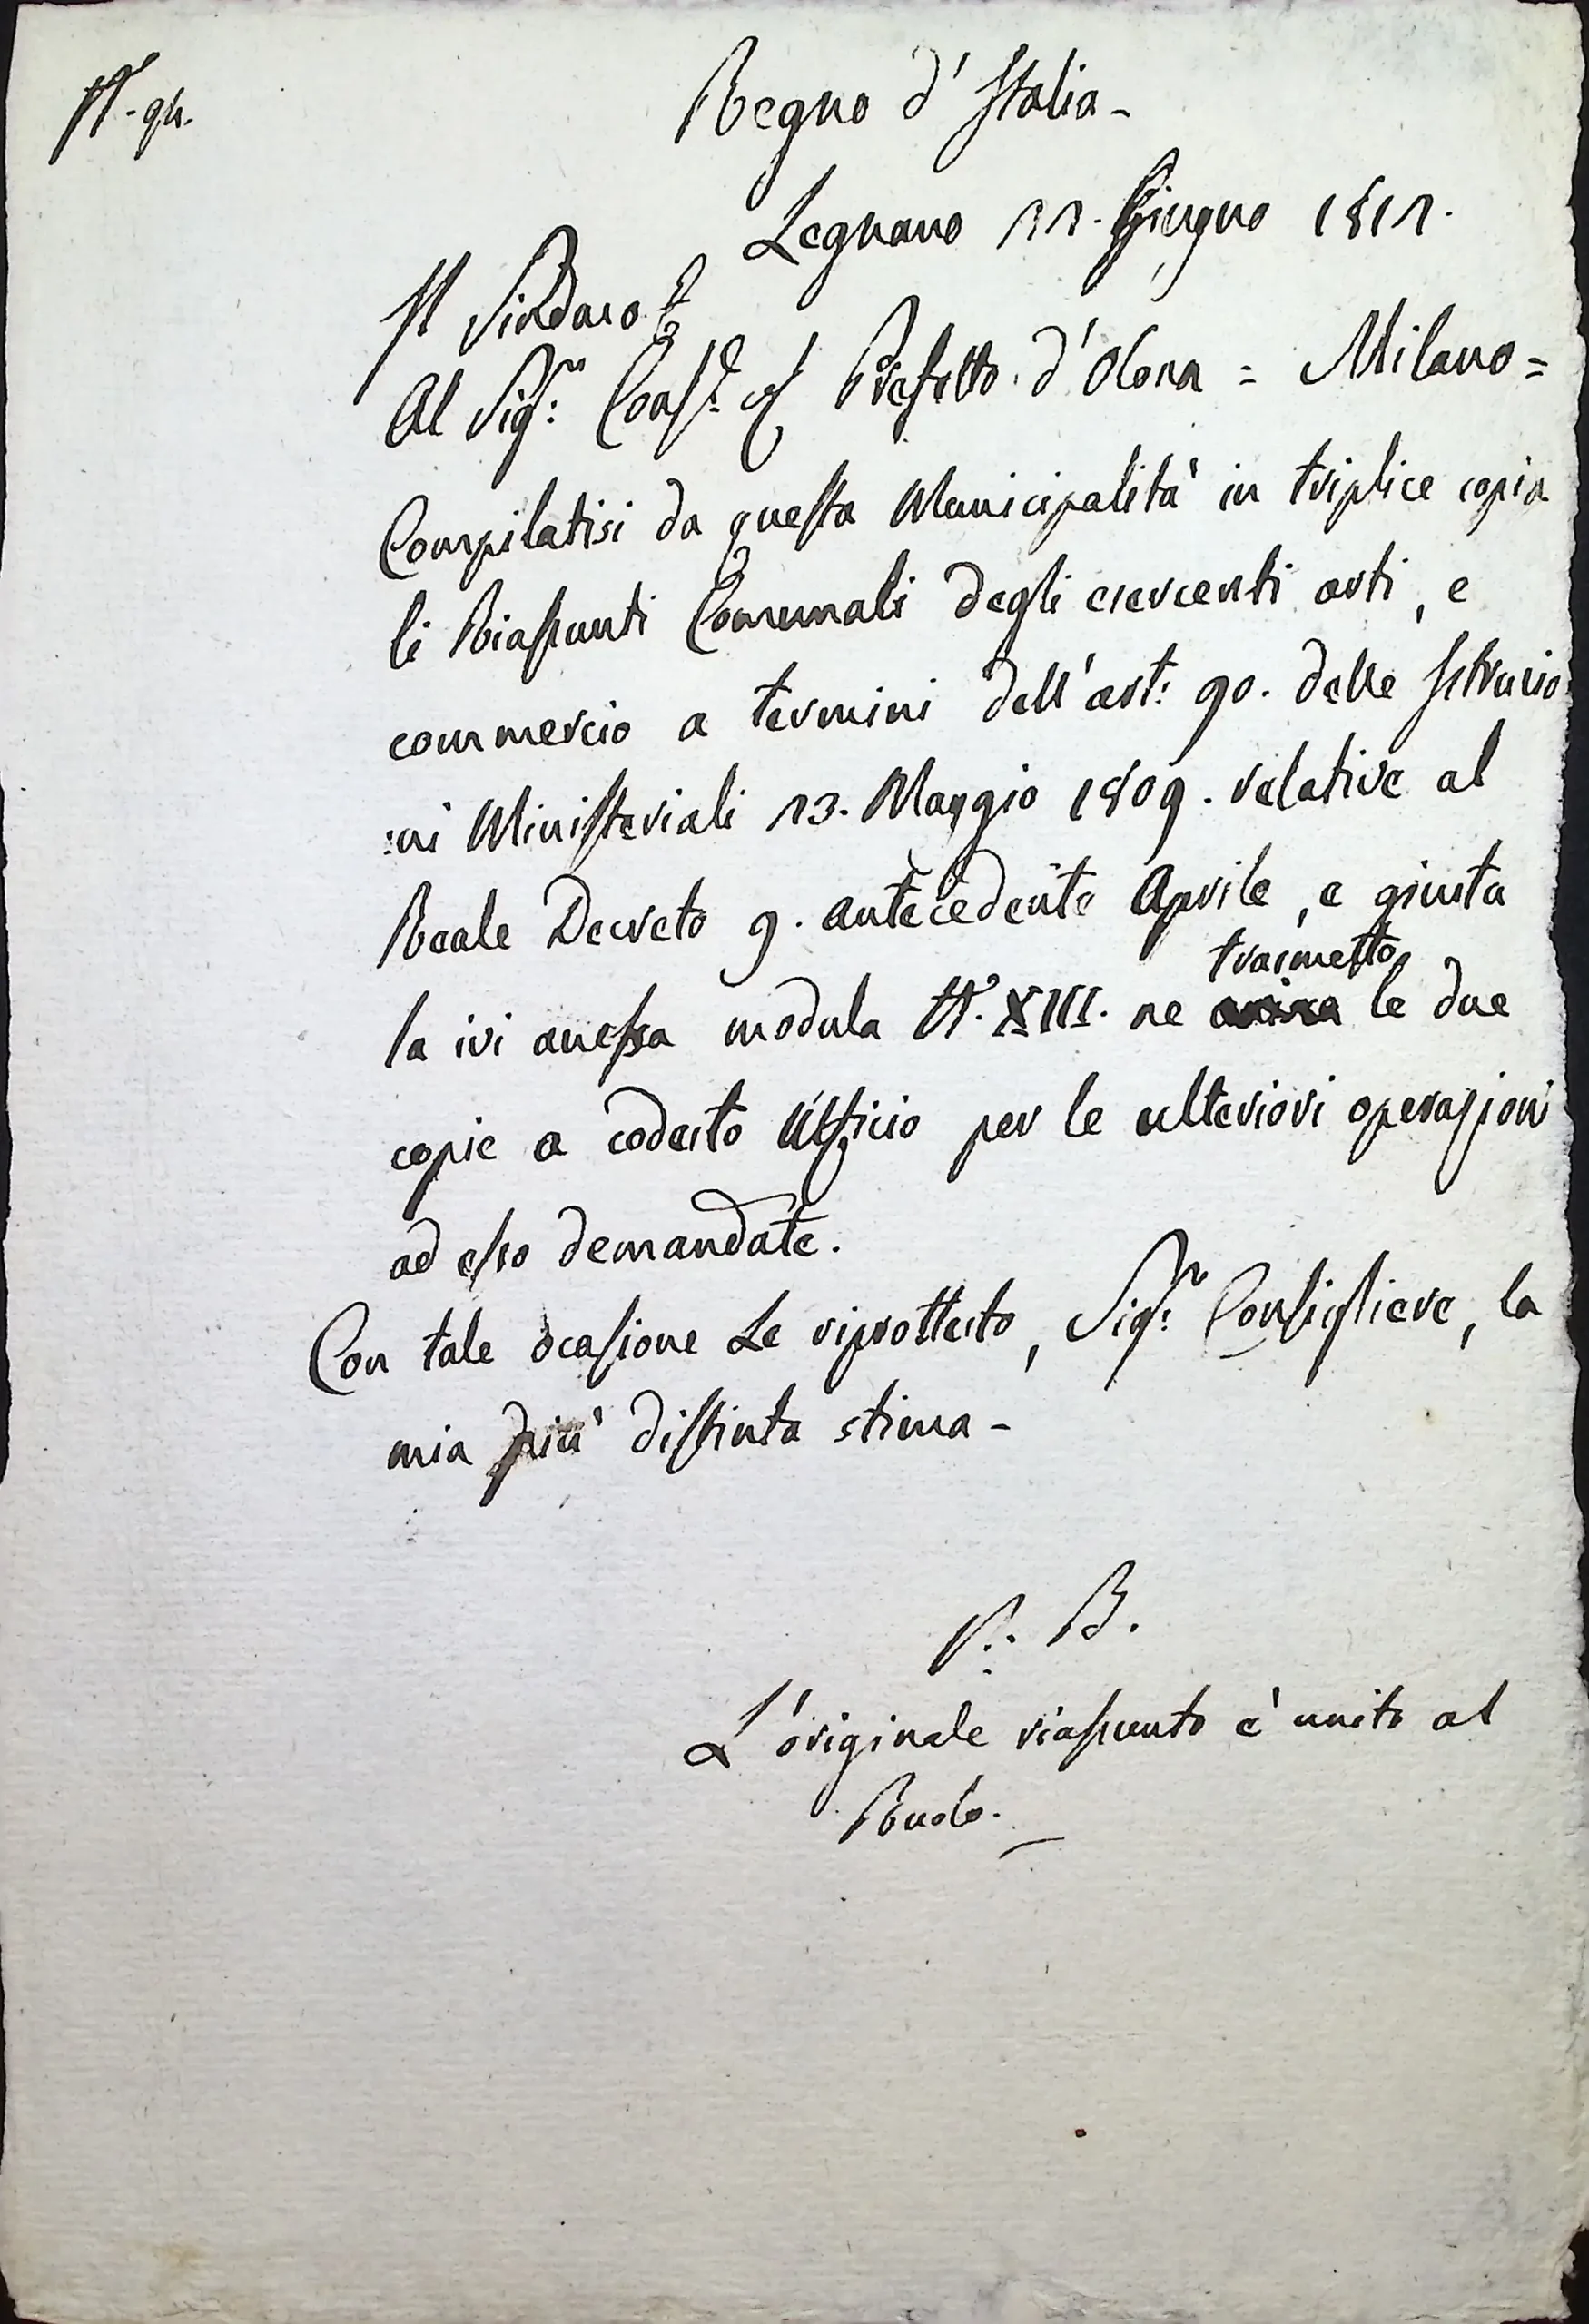 N.° 94.
Regno d'Italia -
Legnano 22. Giugno 1812.
Il Sindaco
Al Sig.r Cons.e Prefetto d'Olona = Milano =
Compilatisi da questa Municipalità in triplice copia
li Riassunti Comunali degli esercenti arti, e
commercio a termini dell'art: 90. delle Istruzio:
:ni Ministeriali 23. Maggio 1809. relative al
Reale Decreto 9. antecedente Aprile, e giusta
trasmetto
la ivi anessa modula N.° XIII. ne le due
copie a codesto Ufficio per le ulteriori operazioni
ad esso demandate.
Con tale ocasione Le riprottesto, Sig.r Consigliere, la
mia più distinta stima -
B.
L'originale riassunto è unito al
Ruolo.